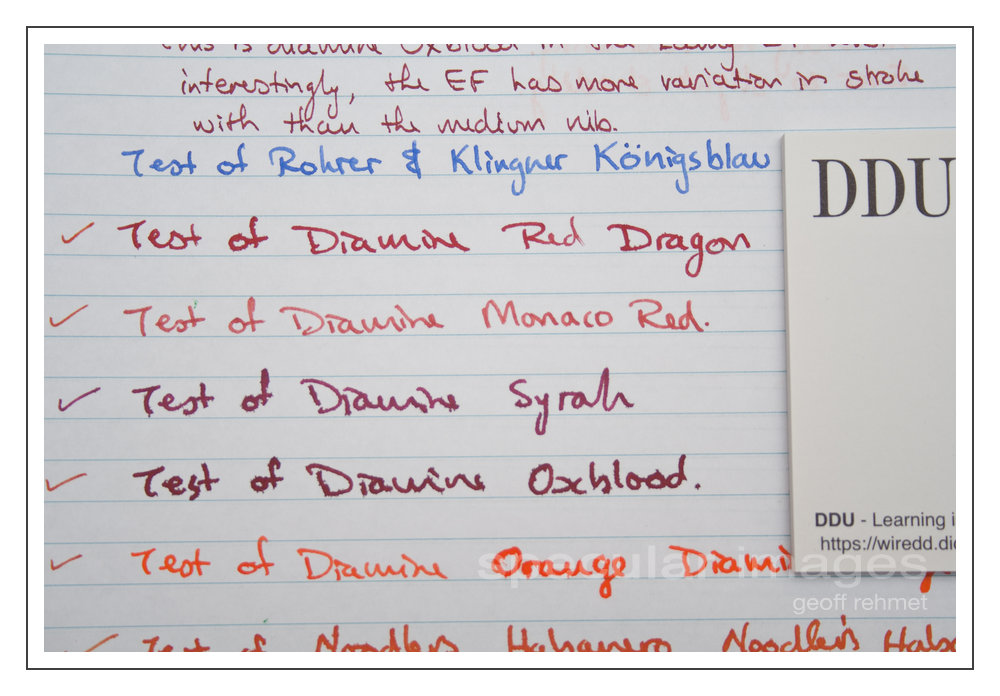 This is diamine Oxblood in the
interestingly, the EF has more variation in stroke
with than the medium nib.
Test of Rohrer & Klingner Königsblau
Test of Diamine Red Dragon
Test of Diamine Monaco Red.
Test of Diamine Syrah
Test of Diamine Oxblood.
Test of Diamine Orange Diami
Test of Noodlers Habanero Noodler's Haba
DDU
DDU - Learning i
https://wiredd.di
specular images
geoff rehmet